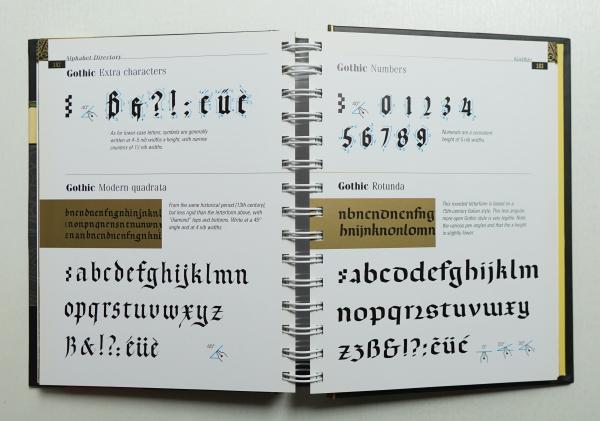 Alphabet Directory
182
Gothic Extra characters
ß &?!;
As for lower-case letters, symbols are generally
written at 4-5 nib widths x-height, with narrow
counters of 1½ nib widths.
Gothic Modern quadrata
From the same historical period (13th century)
but less rigid than the letterform above, with
"diamond" tops and bottoms. Write at a 45°
angle and at 4 nib widths.
abcdefghijklmn
opqrstuvwxyz
ß&!?;éüè
45°
Gothic
183
Gothic Numbers
40°
0 1 2 3 4
5 6 7 8 9
Numerals are a consistent
height of 5 nib widths.
Gothic Rotunda
nbncndncnfng
hnijnknonlomn
This rounded letterform is based on a
15th-century Italian style. This less angular,
more open Gothic style is very legible. Note
the various pen angles and that the x-height
is slightly lower.
abcdefghijklm
nopqrsstuvwxy
zzß&!?;